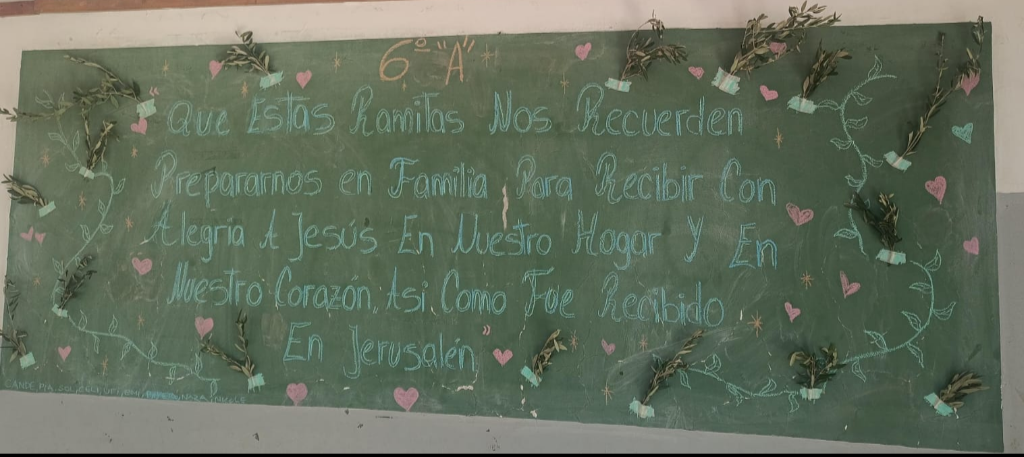 6° "A"
Que Estas Ramitas Nos Recuerden
Prepararnos en Familia Para Recibir Con
Alegría A Jesús En Nuestro Hogar Y En
Nuestro Corazón, Así Como Fue Recibido
En Jerusalén